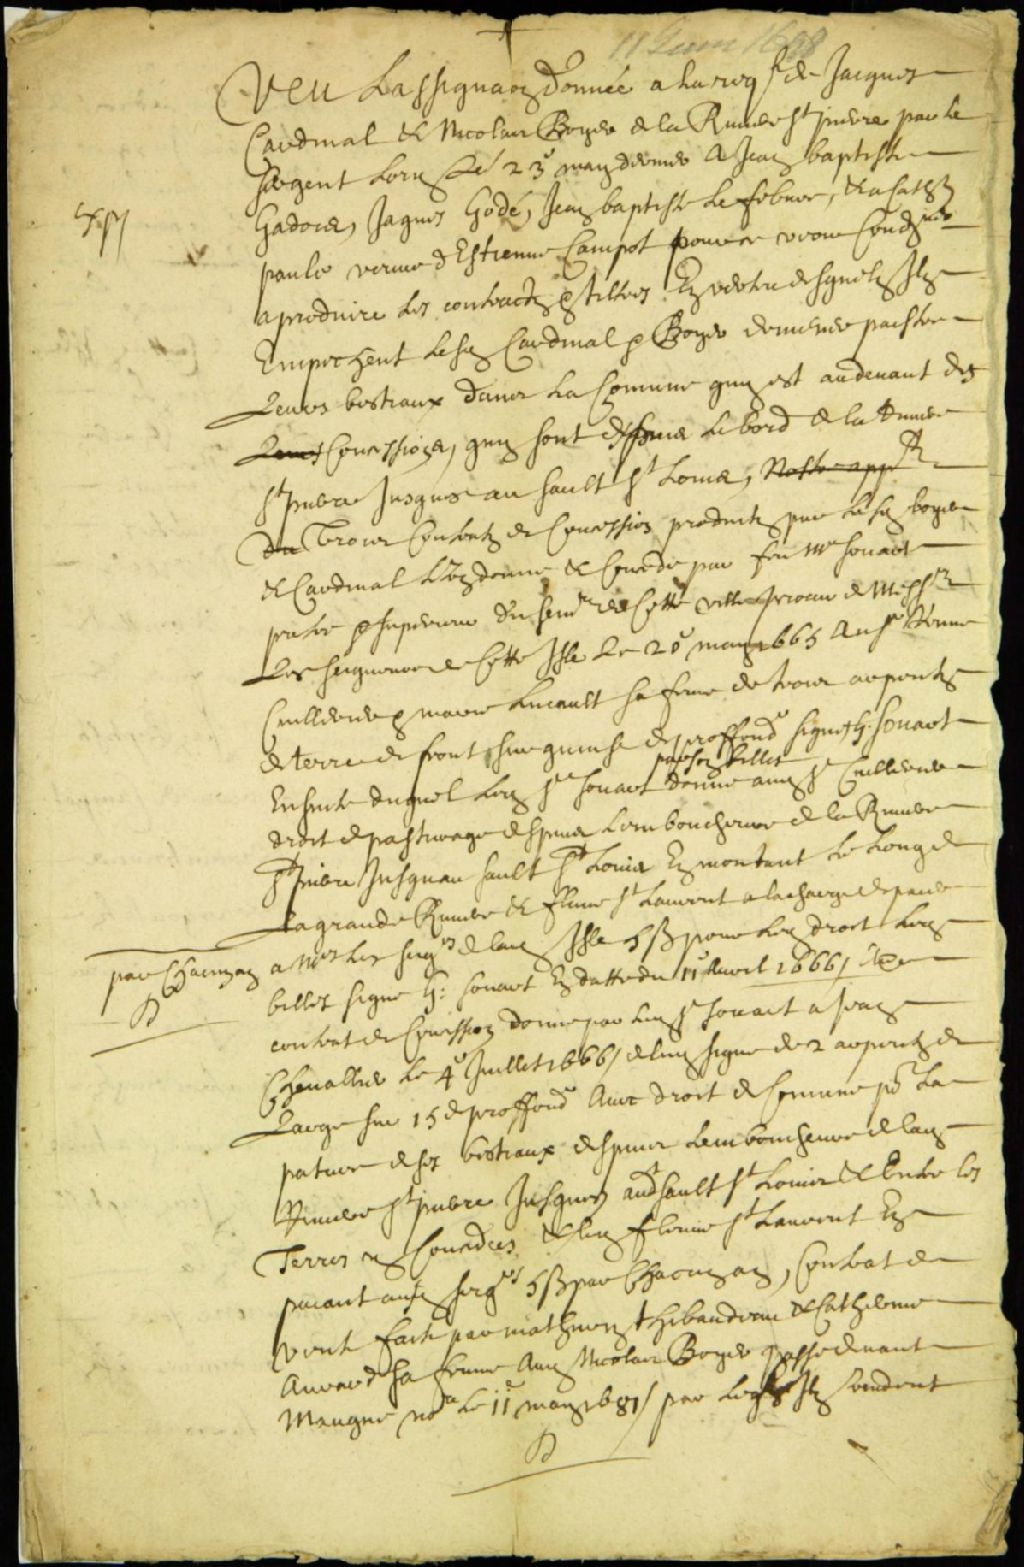 11 Juin 1698
Veu Lassignaon donnée a la reqte de Jacques
Cardinal et Nicolas Boyer de la Riuiere St pierre par le
sergent Lory Le 23e may dernier A Jean baptiste
Gadois, Jaques Godé, Jean baptiste Le febure, et a Cath
paulo veuue d'Estienne Campot pour se veoir Cond
a produire les contracts et tiltres En vertu desquels Ils
Empeschent lesd Cardinal et Boyer de mener paistre
Leurs bestiaux dans La Comune quy est audeuant des
Concessions, quy sont depuis Le bord de la Riuiere
St pierre Jusques au Sault St Louis, Nostre app
du Trois Contrats de Concession produits par lesd boyer
et Cardinal L'un donné et Concedé par feu Mre Souart
prestre et superieur du Semre de Cette ville de Messrs
Les seigneurs de Cette Isle Le 20e may 1665 Au Sr René
Cuillerier et marie Lucault sa feme de trois arpents
de terre de front sur quinse de proffondr signé G. Souart
par son billet
Ensuite duquel led Sr Souart donne aud Sr Cuillerier
droit de pasturage depuis Lembouchure de la Riuiere
St pierre Jusquau Sault St Louis En montant Le Long de
La grande Riuiere et fleuue St Laurent a la charge de paier
par Chacun an
a Mrs Les seigrs de lad Isle 5s pour led droit led
billet signé G: Souart En datte du 11e Auril 1666/
contrat de Concession donné par led Sr Souart a Jean
Cheuallier Le 4e Juillet 1666/ de luy signé de 2 arpents de
Large sur 15 de proffondr Auec droit de Comune pr La
pature de ses bestiaux depuis Lembouchure de lad
Riuiere St pierre Jusques audt Sault St Louis et Entre les
Terres Concedées et led fleuue St Laurent En
paiant ausd seigrs 5s par Chacun an, Contrat de
vente faite par mathurin thibaudeau et Catherine
Aurard sa feme Aud Nicolas Boyer passé deuant
Maugue nore Le 11e may 1681/ par Lequel Ils vendent